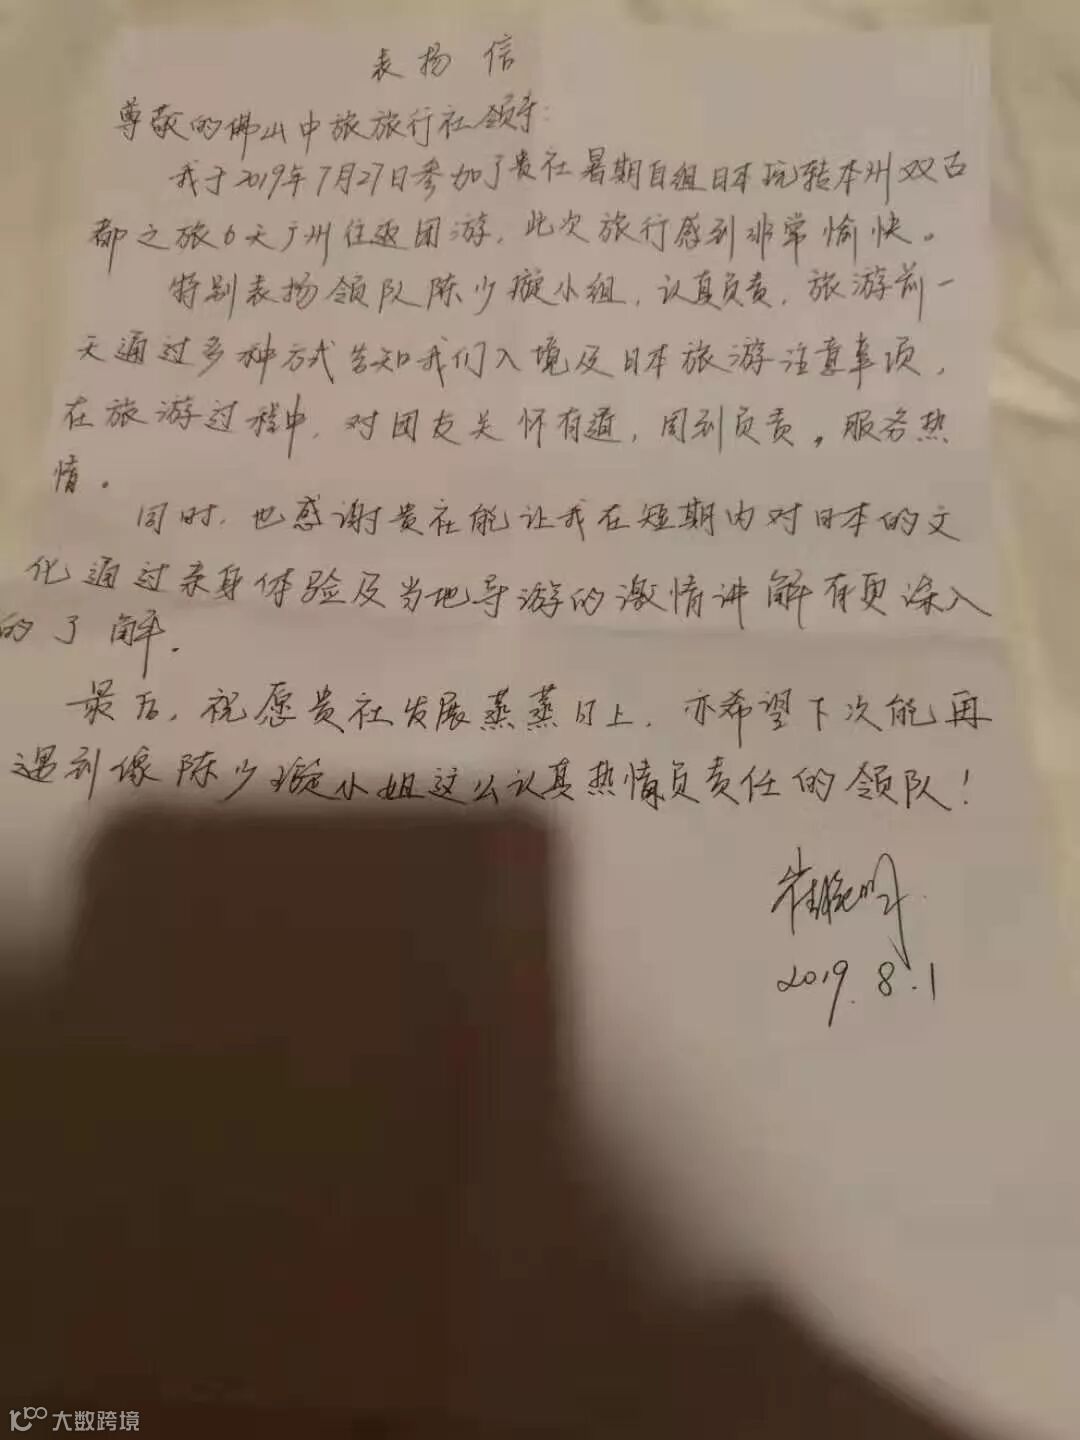 表扬信
尊敬的佛山中旅旅行社领导：
我于2019年7月27日参加了贵社暑期自组日本玩转本州双古
都之旅6天广州往返团游，此次旅行感到非常愉快。
特别表扬领队陈少璇小组，认真负责，旅游前一
天通过多种方式告知我们入境及日本旅游注意事项，
在旅游过程中，对团友关怀有道，周到负责，服务热
情。
同时，也感谢贵社能让我在短期内对日本的文
化通过亲身体验及当地导游的激情讲解有更深入
的了解.
最后，祝愿贵社发展蒸蒸日上，亦希望下次能再
遇到像陈少璇小姐这么认真热情负责任的领队！
崔
2019.8.1
大数跨境